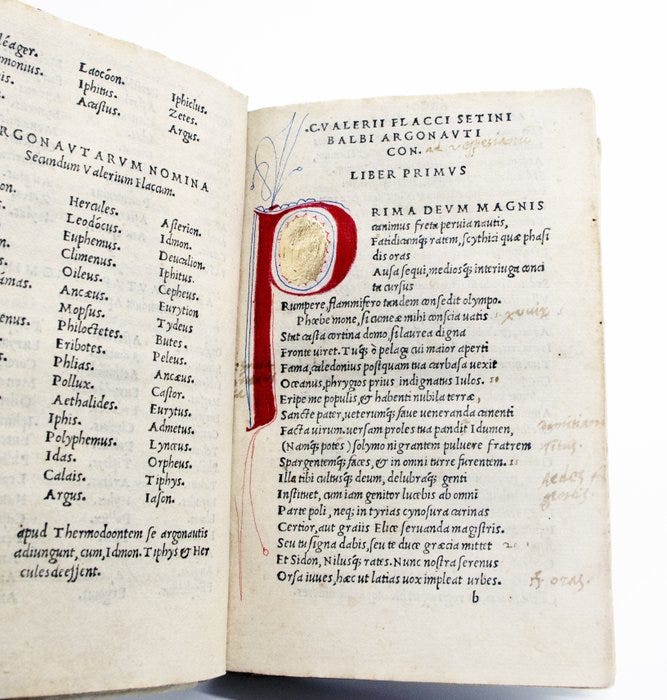 léager. Laocóon. Iphiclus.
monius. Iphitus. Zetes.
Acastus. Argus.
RGONAVTARVM NOMINA
Secundum Valerium Flaccum.
Hercules. Asterion.
Leodocus. Idmon.
Euphemus. Deucalion.
Climenus. Iphitus.
Oileus. Cepheus.
Ancæus. Eurytion
Mopsus. Tydeus
Philoctetes. Butes.
Eribotes. Peleus.
Phlias. Ancæus.
Pollux. Castor.
Aethalides. Eurytus.
Iphis. Admetus.
Polyphemus. Lynceus.
Idas. Orpheus.
Calais. Tiphys.
Argus. Iason.
apud Thermodoontem se argonautis
adiungunt, cum, Idmon. Tiphys & Her
cules deessent.
.C.VALERII FLACCI SETINI
BALBI ARGONAVTI
CON. ad vespesianu
LIBER PRIMVS
PRIMA DEVM MAGNIS
canimus freta peruia nautis,
Fatidicamq; ratem, scythici quæ phasi
dis oras
Ausa sequi, mediosq; inter iuga conci
ta cursus
Rumpere, flammifero tandem consedit olympo.
Phœbe mone, si cumeæ mihi conscia uatis
Stat casta cortina domo, si laurea digna
Fronte uiret. Tuq; ò pelagi cui maior aperti
Fama, caledonius postquam tua carbasa uexit
Oceanus, phrygios prius indignatus Iulos.
Eripe me populis, & habenti nubila terræ,
Sancte pater, ueterumq; faue ueneranda canenti
Facta uirum. uersam proles tua pandit Idumen,
(Namq; potes) solymo nigrantem puluere fratrem
Spargentemq; faces, & in omni turre furentem.
Illa tibi cultusq; deum, delubraq; genti
Instituet, cum iam genitor lucebis ab omni
Parte poli, neq; in tyrias cynosura carinas
Certior, aut graiis Elice seruanda magistris.
Seu tu signa dabis, seu te duce græcia mittet
Et Sidon, Nilusq; rates. Nunc nostra serenus
Orsa iuues, hæc ut latias uox impleat urbes.
b